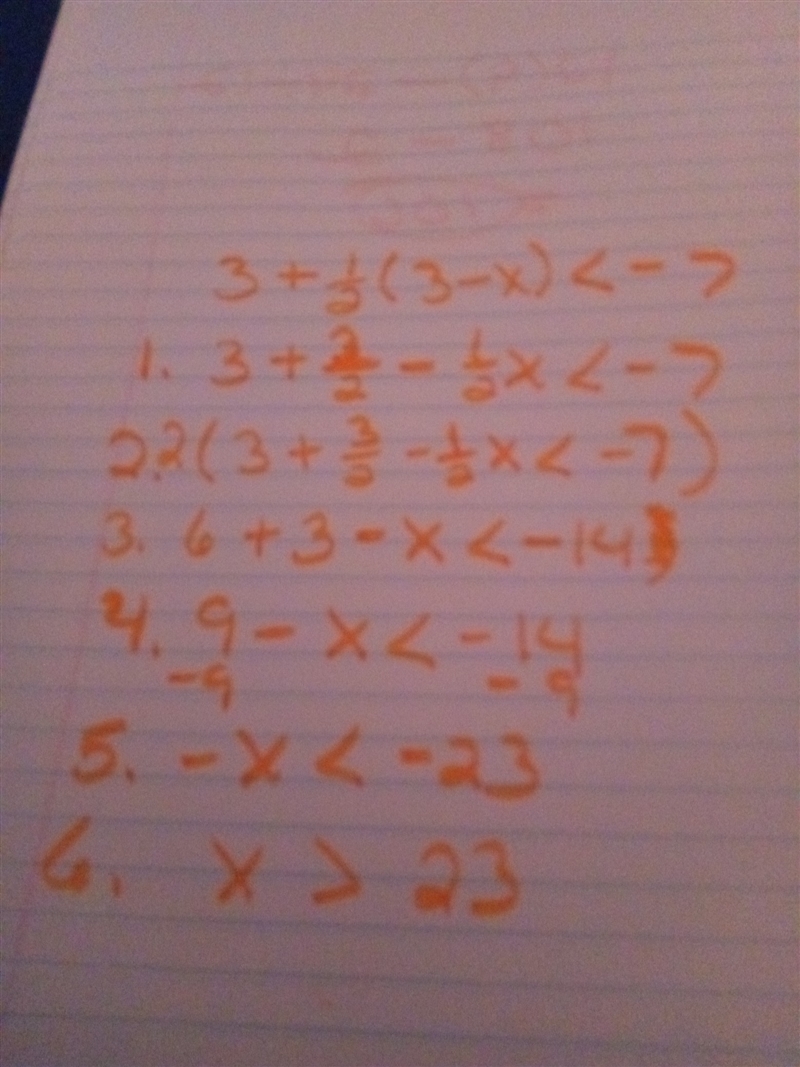 3 + 1/2 (3 - x) < - 7
1. 3 + 3/2 - 1/2 x < - 7
2. 2 (3 + 3/2 - 1/2 x < - 7)
3. 6 + 3 - x < - 14
4. 9 - x < - 14
- 9 - 9
5. - x < - 23
6. x > 23